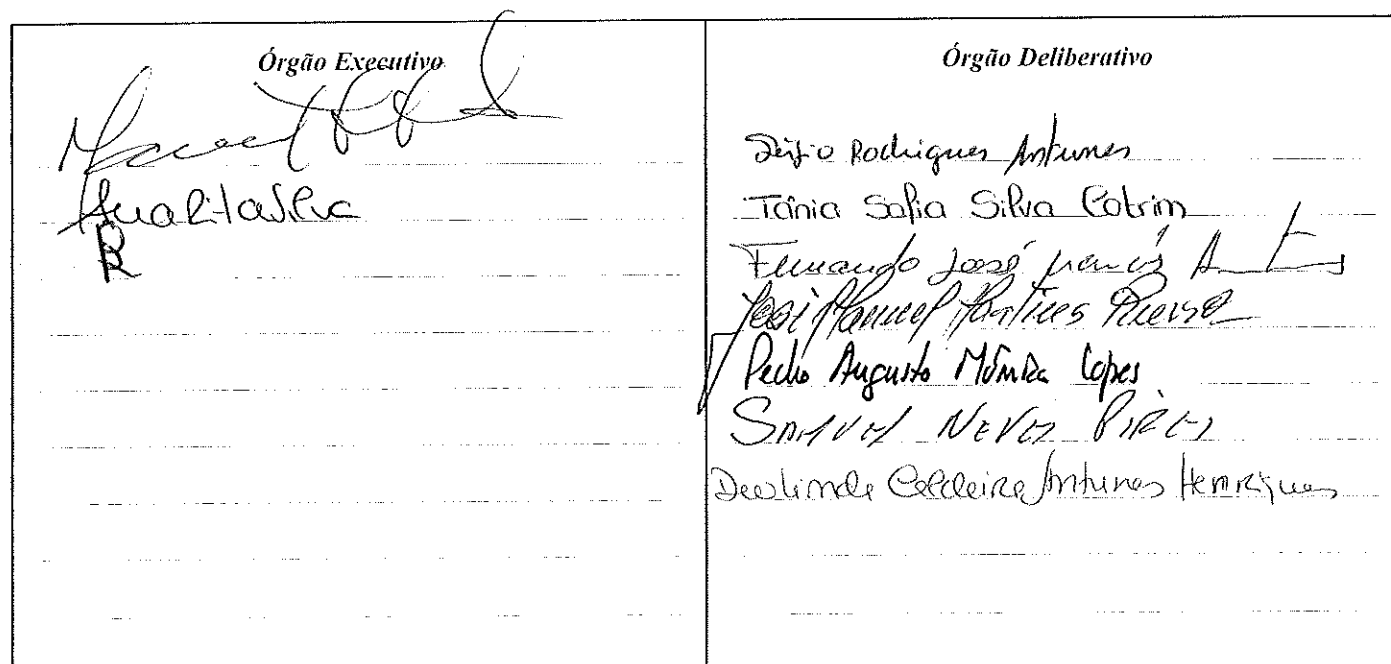 Órgão Executivo
Ana Rita Silva
Órgão Deliberativo
Sérgio Rodrigues Antunes
Tânia Sofia Silva Cotrim
Fernando José
José Manuel Martins
Pedro Augusto Mónica Lopes
SAMUEL NEVES PIRES
Deolinda Caldeira Antunes Henriques